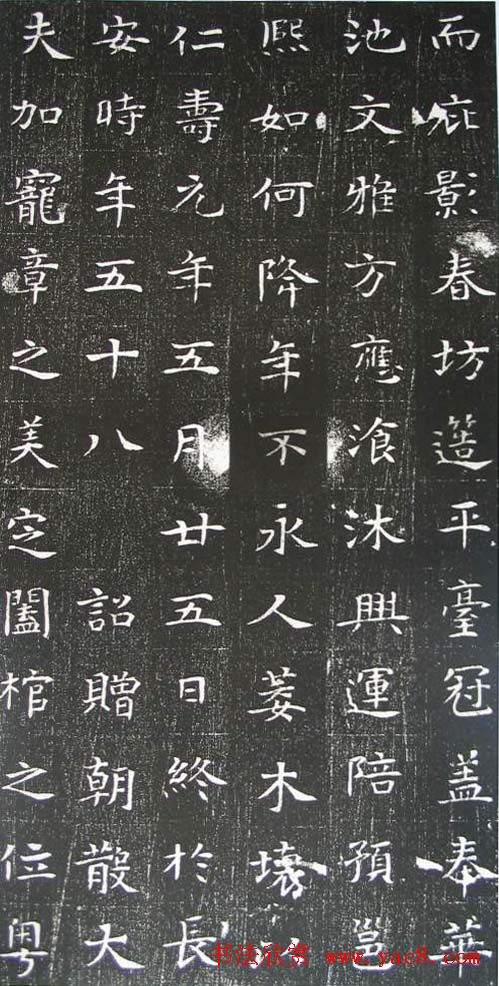 而庇影春坊簉平臺冠盖奉華
池文雅方應飡沐興運陪預邕
熙如何降年不永人萎木壞
仁壽元年五月廿五日終於長
安時年五十八 詔贈朝散大
夫加寵章之美定闔棺之位粤
书法欣赏 www.yac8.com